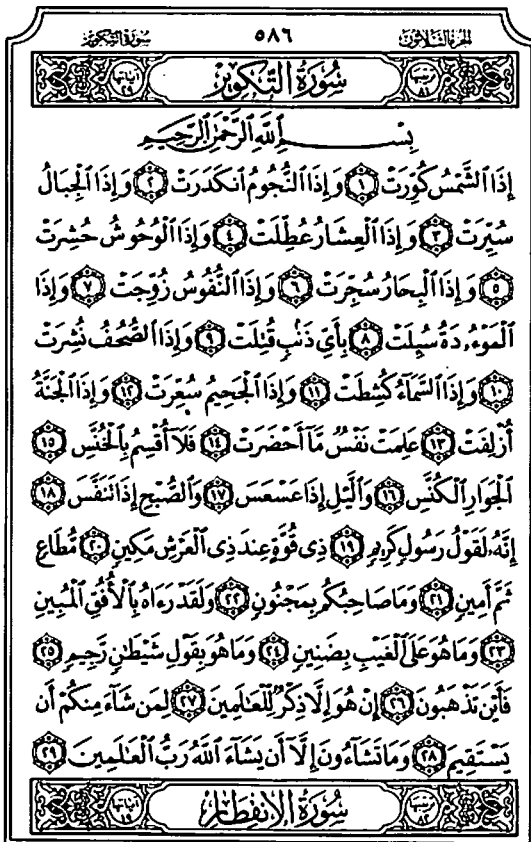 الجزء الثلاثون ٥٨٦ سورة التكوير
ترتيبها ٨١ سُورَةُ التَّكْوِيرِ آياتها ٢٩
بِسْمِ اللَّهِ الرَّحْمَٰنِ الرَّحِيمِ
إِذَا ٱلشَّمْسُ كُوِّرَتْ ١ وَإِذَا ٱلنُّجُومُ ٱنكَدَرَتْ ٢ وَإِذَا ٱلْجِبَالُ
سُيِّرَتْ ٣ وَإِذَا ٱلْعِشَارُ عُطِّلَتْ ٤ وَإِذَا ٱلْوُحُوشُ حُشِرَتْ
٥ وَإِذَا ٱلْبِحَارُ سُجِّرَتْ ٦ وَإِذَا ٱلنُّفُوسُ زُوِّجَتْ ٧ وَإِذَا
ٱلْمَوْءُۥدَةُ سُئِلَتْ ٨ بِأَيِّ ذَنۢبٍ قُتِلَتْ ٩ وَإِذَا ٱلصُّحُفُ نُشِرَتْ
١٠ وَإِذَا ٱلسَّمَآءُ كُشِطَتْ ١١ وَإِذَا ٱلْجَحِيمُ سُعِّرَتْ ١٢ وَإِذَا ٱلْجَنَّةُ
أُزْلِفَتْ ١٣ عَلِمَتْ نَفْسٌ مَّآ أَحْضَرَتْ ١٤ فَلَآ أُقْسِمُ بِٱلْخُنَّسِ ١٥
ٱلْجَوَارِ ٱلْكُنَّسِ ١٦ وَٱلَّيْلِ إِذَا عَسْعَسَ ١٧ وَٱلصُّبْحِ إِذَا تَنَفَّسَ ١٨
إِنَّهُۥ لَقَوْلُ رَسُولٍ كَرِيمٍ ١٩ ذِى قُوَّةٍ عِندَ ذِى ٱلْعَرْشِ مَكِينٍ ٢٠ مُّطَاعٍ
ثَمَّ أَمِينٍ ٢١ وَمَا صَاحِبُكُم بِمَجْنُونٍ ٢٢ وَلَقَدْ رَءَاهُ بِٱلْأُفُقِ ٱلْمُبِينِ
٢٣ وَمَا هُوَ عَلَى ٱلْغَيْبِ بِضَنِينٍ ٢٤ وَمَا هُوَ بِقَوْلِ شَيْطَٰنٍ رَّجِيمٍ ٢٥
فَأَيْنَ تَذْهَبُونَ ٢٦ إِنْ هُوَ إِلَّا ذِكْرٌ لِّلْعَٰلَمِينَ ٢٧ لِمَن شَآءَ مِنكُمْ أَن
يَسْتَقِيمَ ٢٨ وَمَا تَشَآءُونَ إِلَّآ أَن يَشَآءَ ٱللَّهُ رَبُّ ٱلْعَٰلَمِينَ ٢٩
ترتيبها ٨٢ سُورَةُ الانفِطَارِ آياتها ١٩